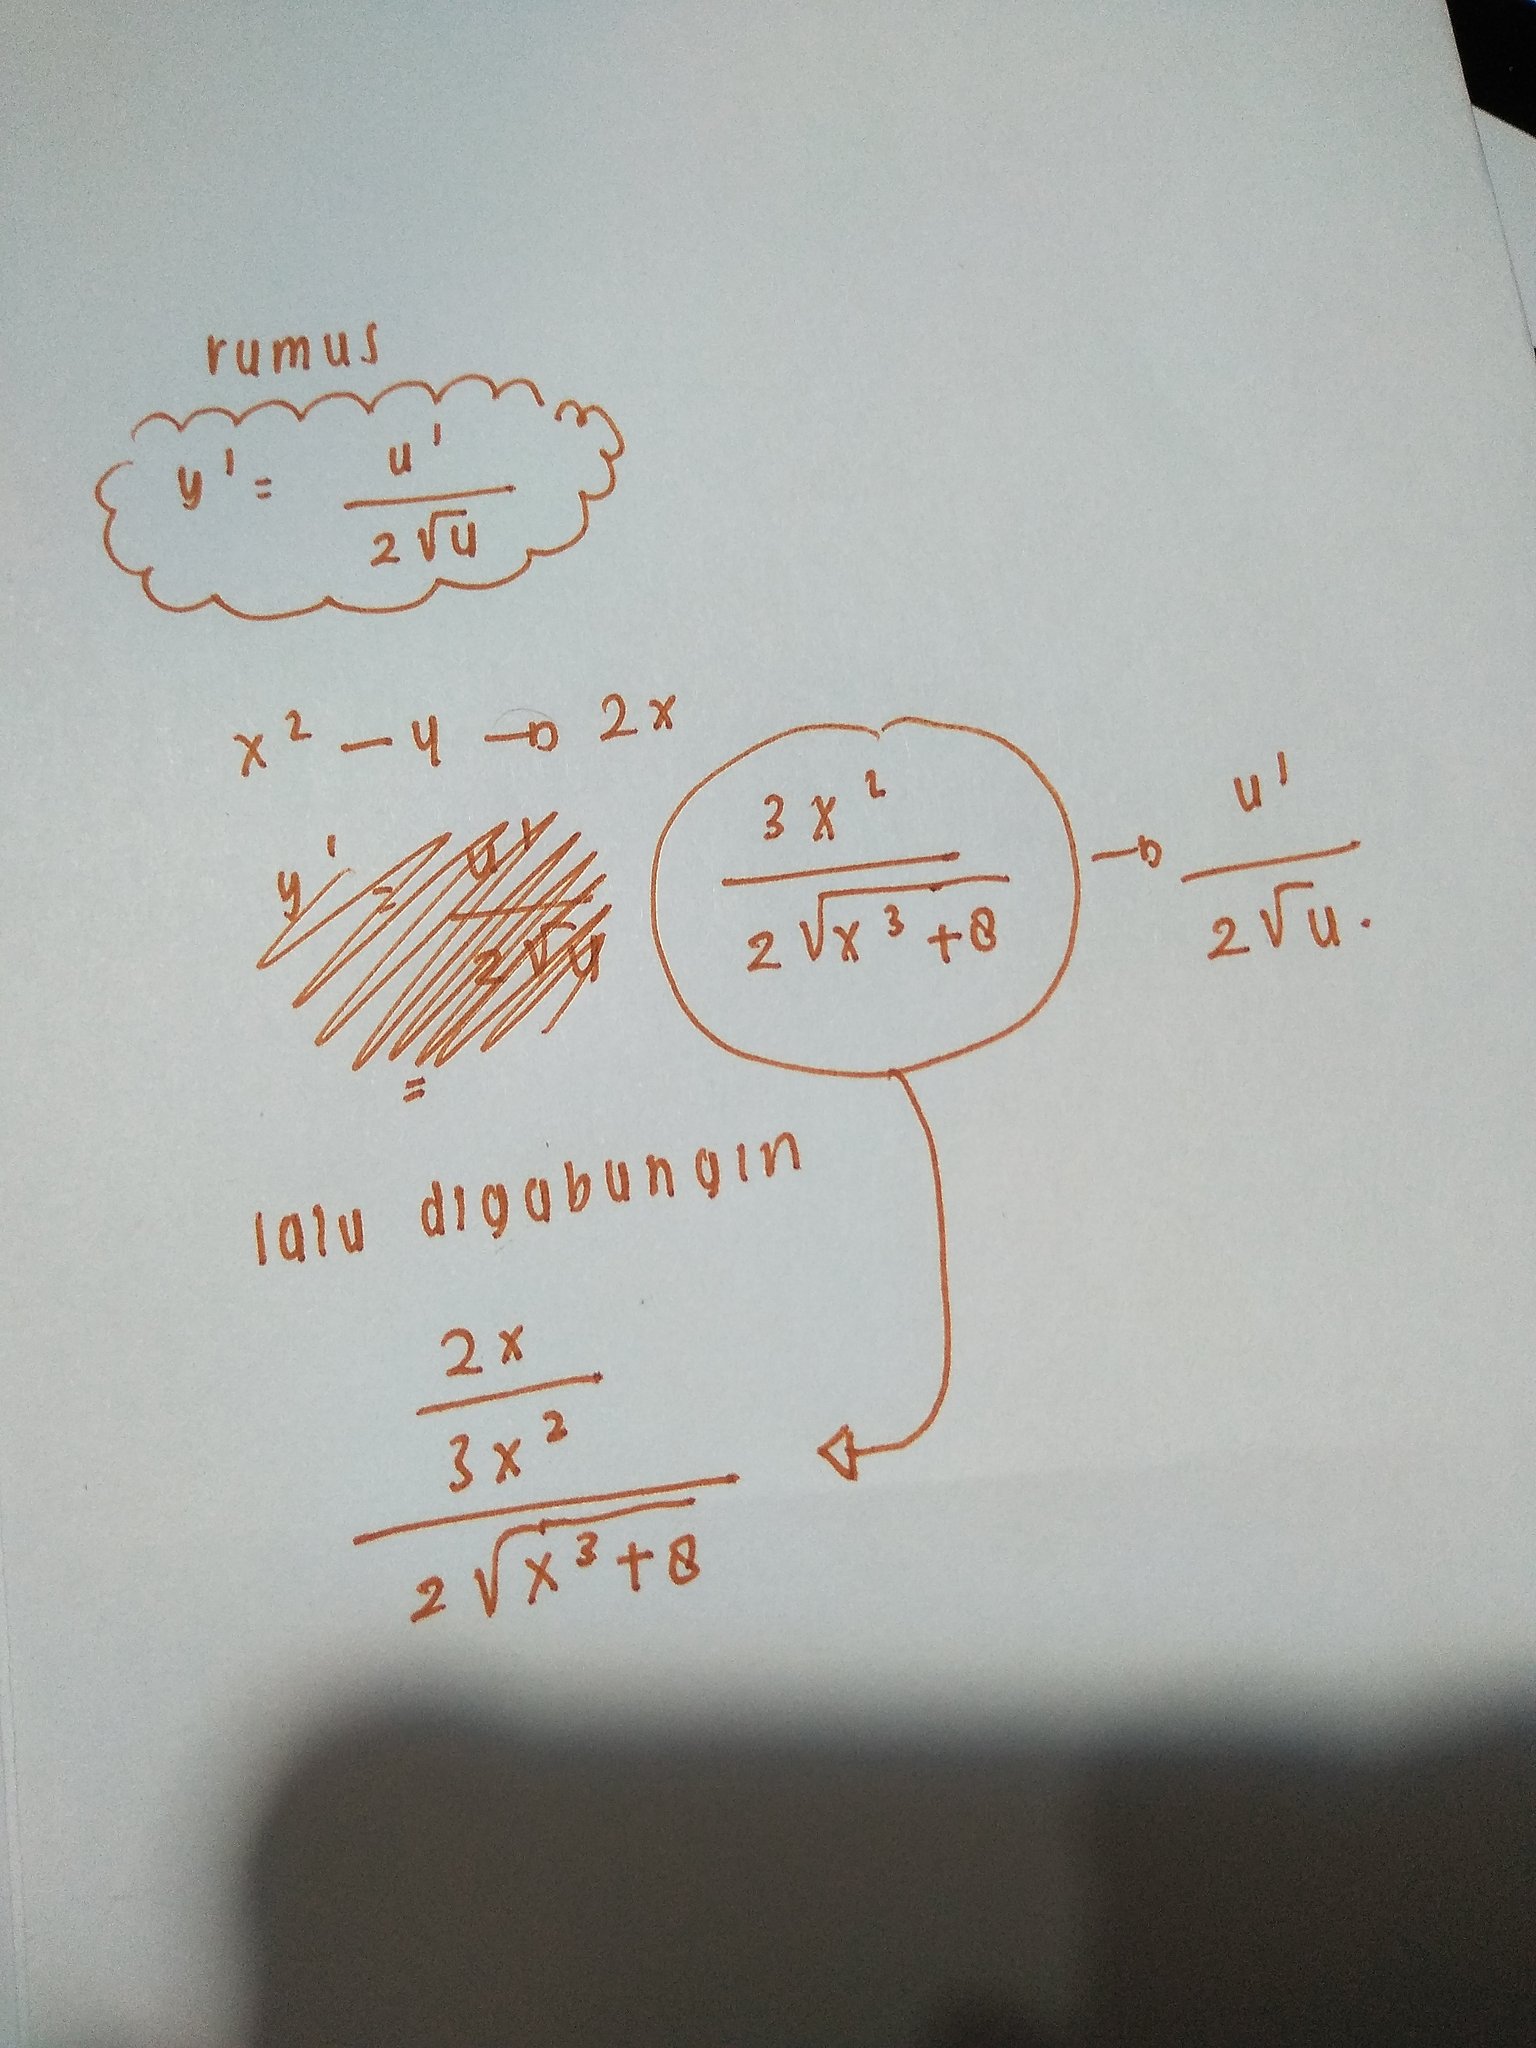 rumus
y' = u' / 2√u
x² - 4 → 2x
3x² / 2√x³+8 → u' / 2√u.
y' = u' / 2√u
=
lalu digabungin
2x / 3x² / 2√x³+8